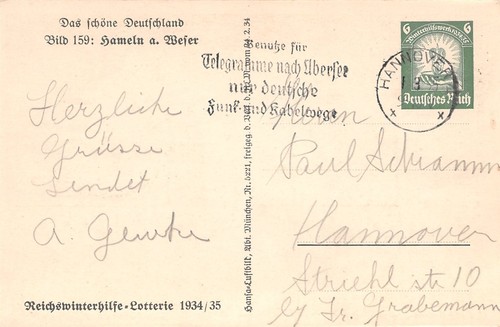 Das schöne Deutschland
Bild 159: Hameln a. Weser
Benutze für
Telegramme nach Übersee
nur deutsche
Funk- und Kabelwege
HANNOVER
6 Winterhilfswerk 6
Deutsches Reich
Herzliche
Grüsse
sendet
A.
Herrn
Paul Schramm
Hannover
Striehl str. 10
b/ Fr. Grabemann
Hansa-Luftbild, Abt. München, Nr. 6221, freigeg. d.
Reichswinterhilfe-Lotterie 1934/35